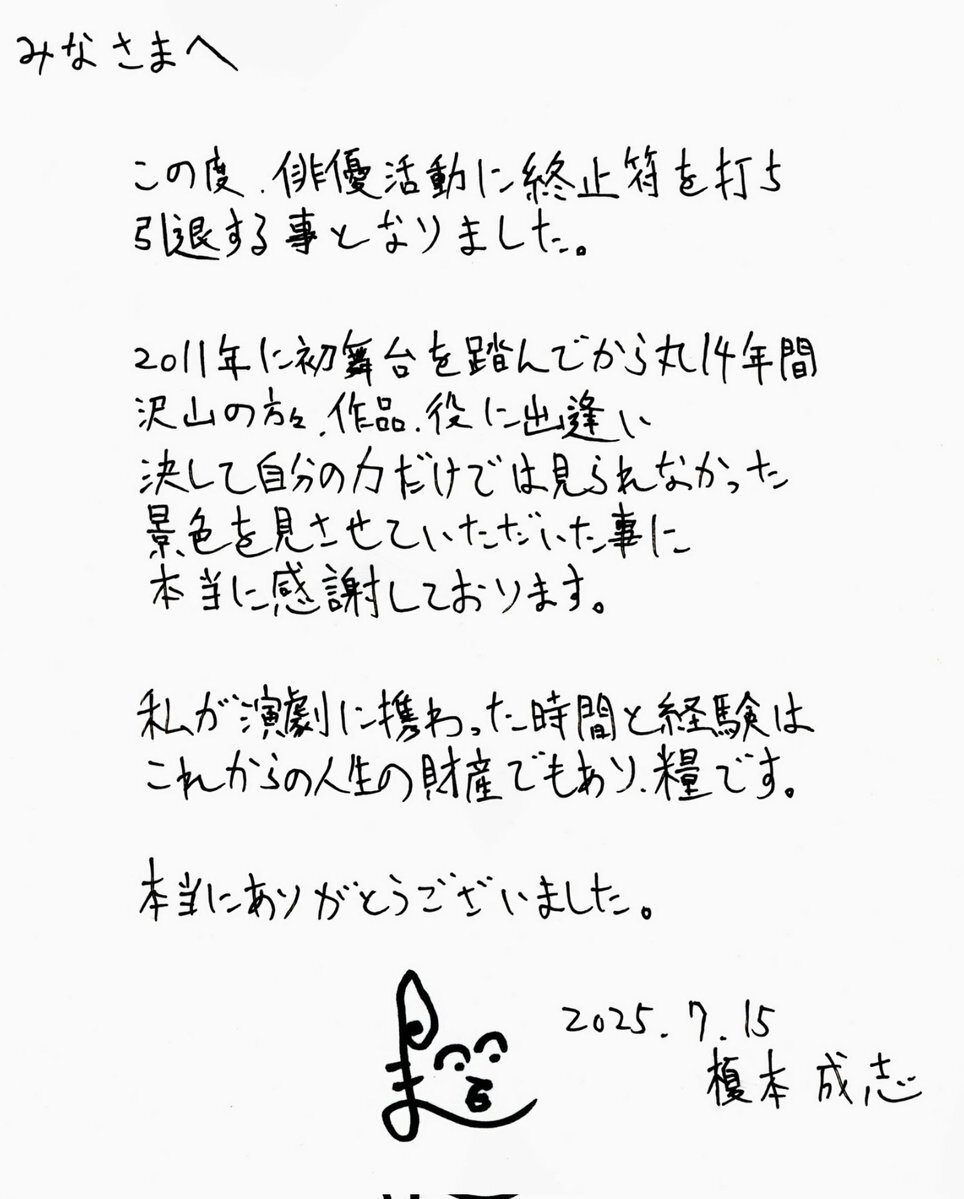 みなさまへ
この度、俳優活動に終止符を打ち
引退する事となりました。
2011年に初舞台を踏んでから丸14年間
沢山の方々、作品、役に出逢い
決して自分の力だけでは見られなかった
景色を見させていただいた事に
本当に感謝しております。
私が演劇に携わった時間と経験は
これからの人生の財産でもあり、糧です。
本当にありがとうございました。
2025.7.15
榎本成志